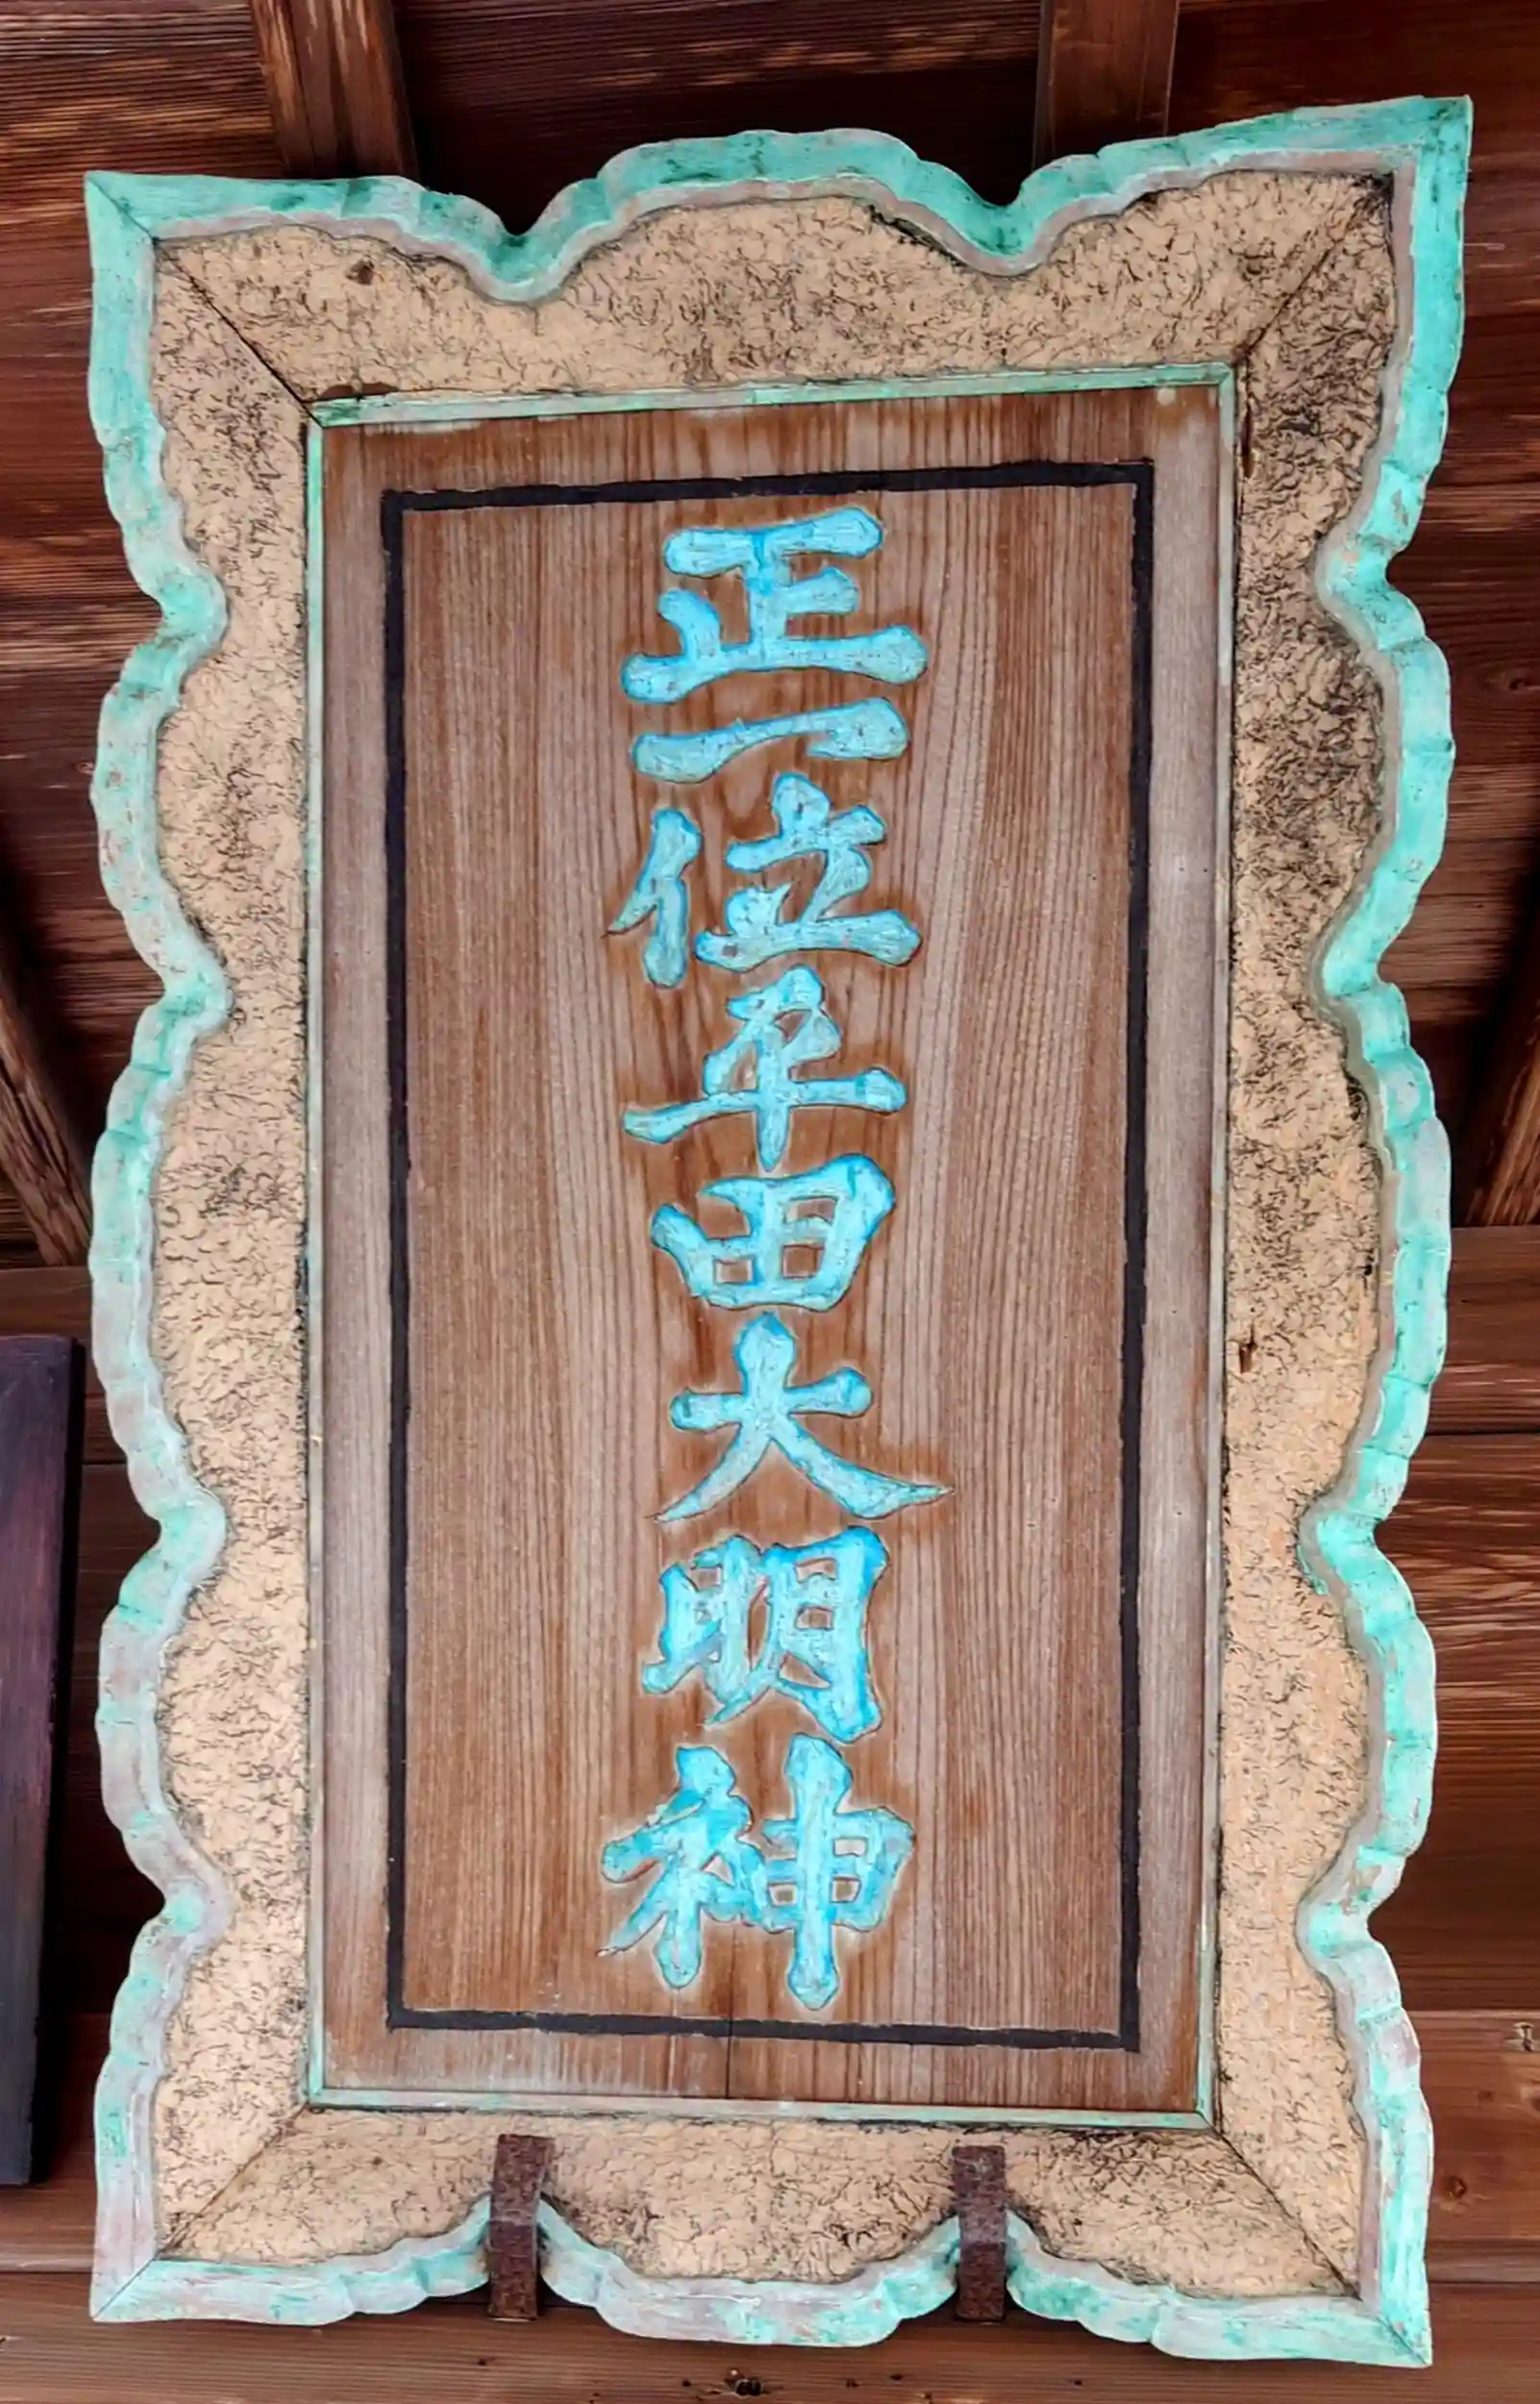 正一位平田大明神